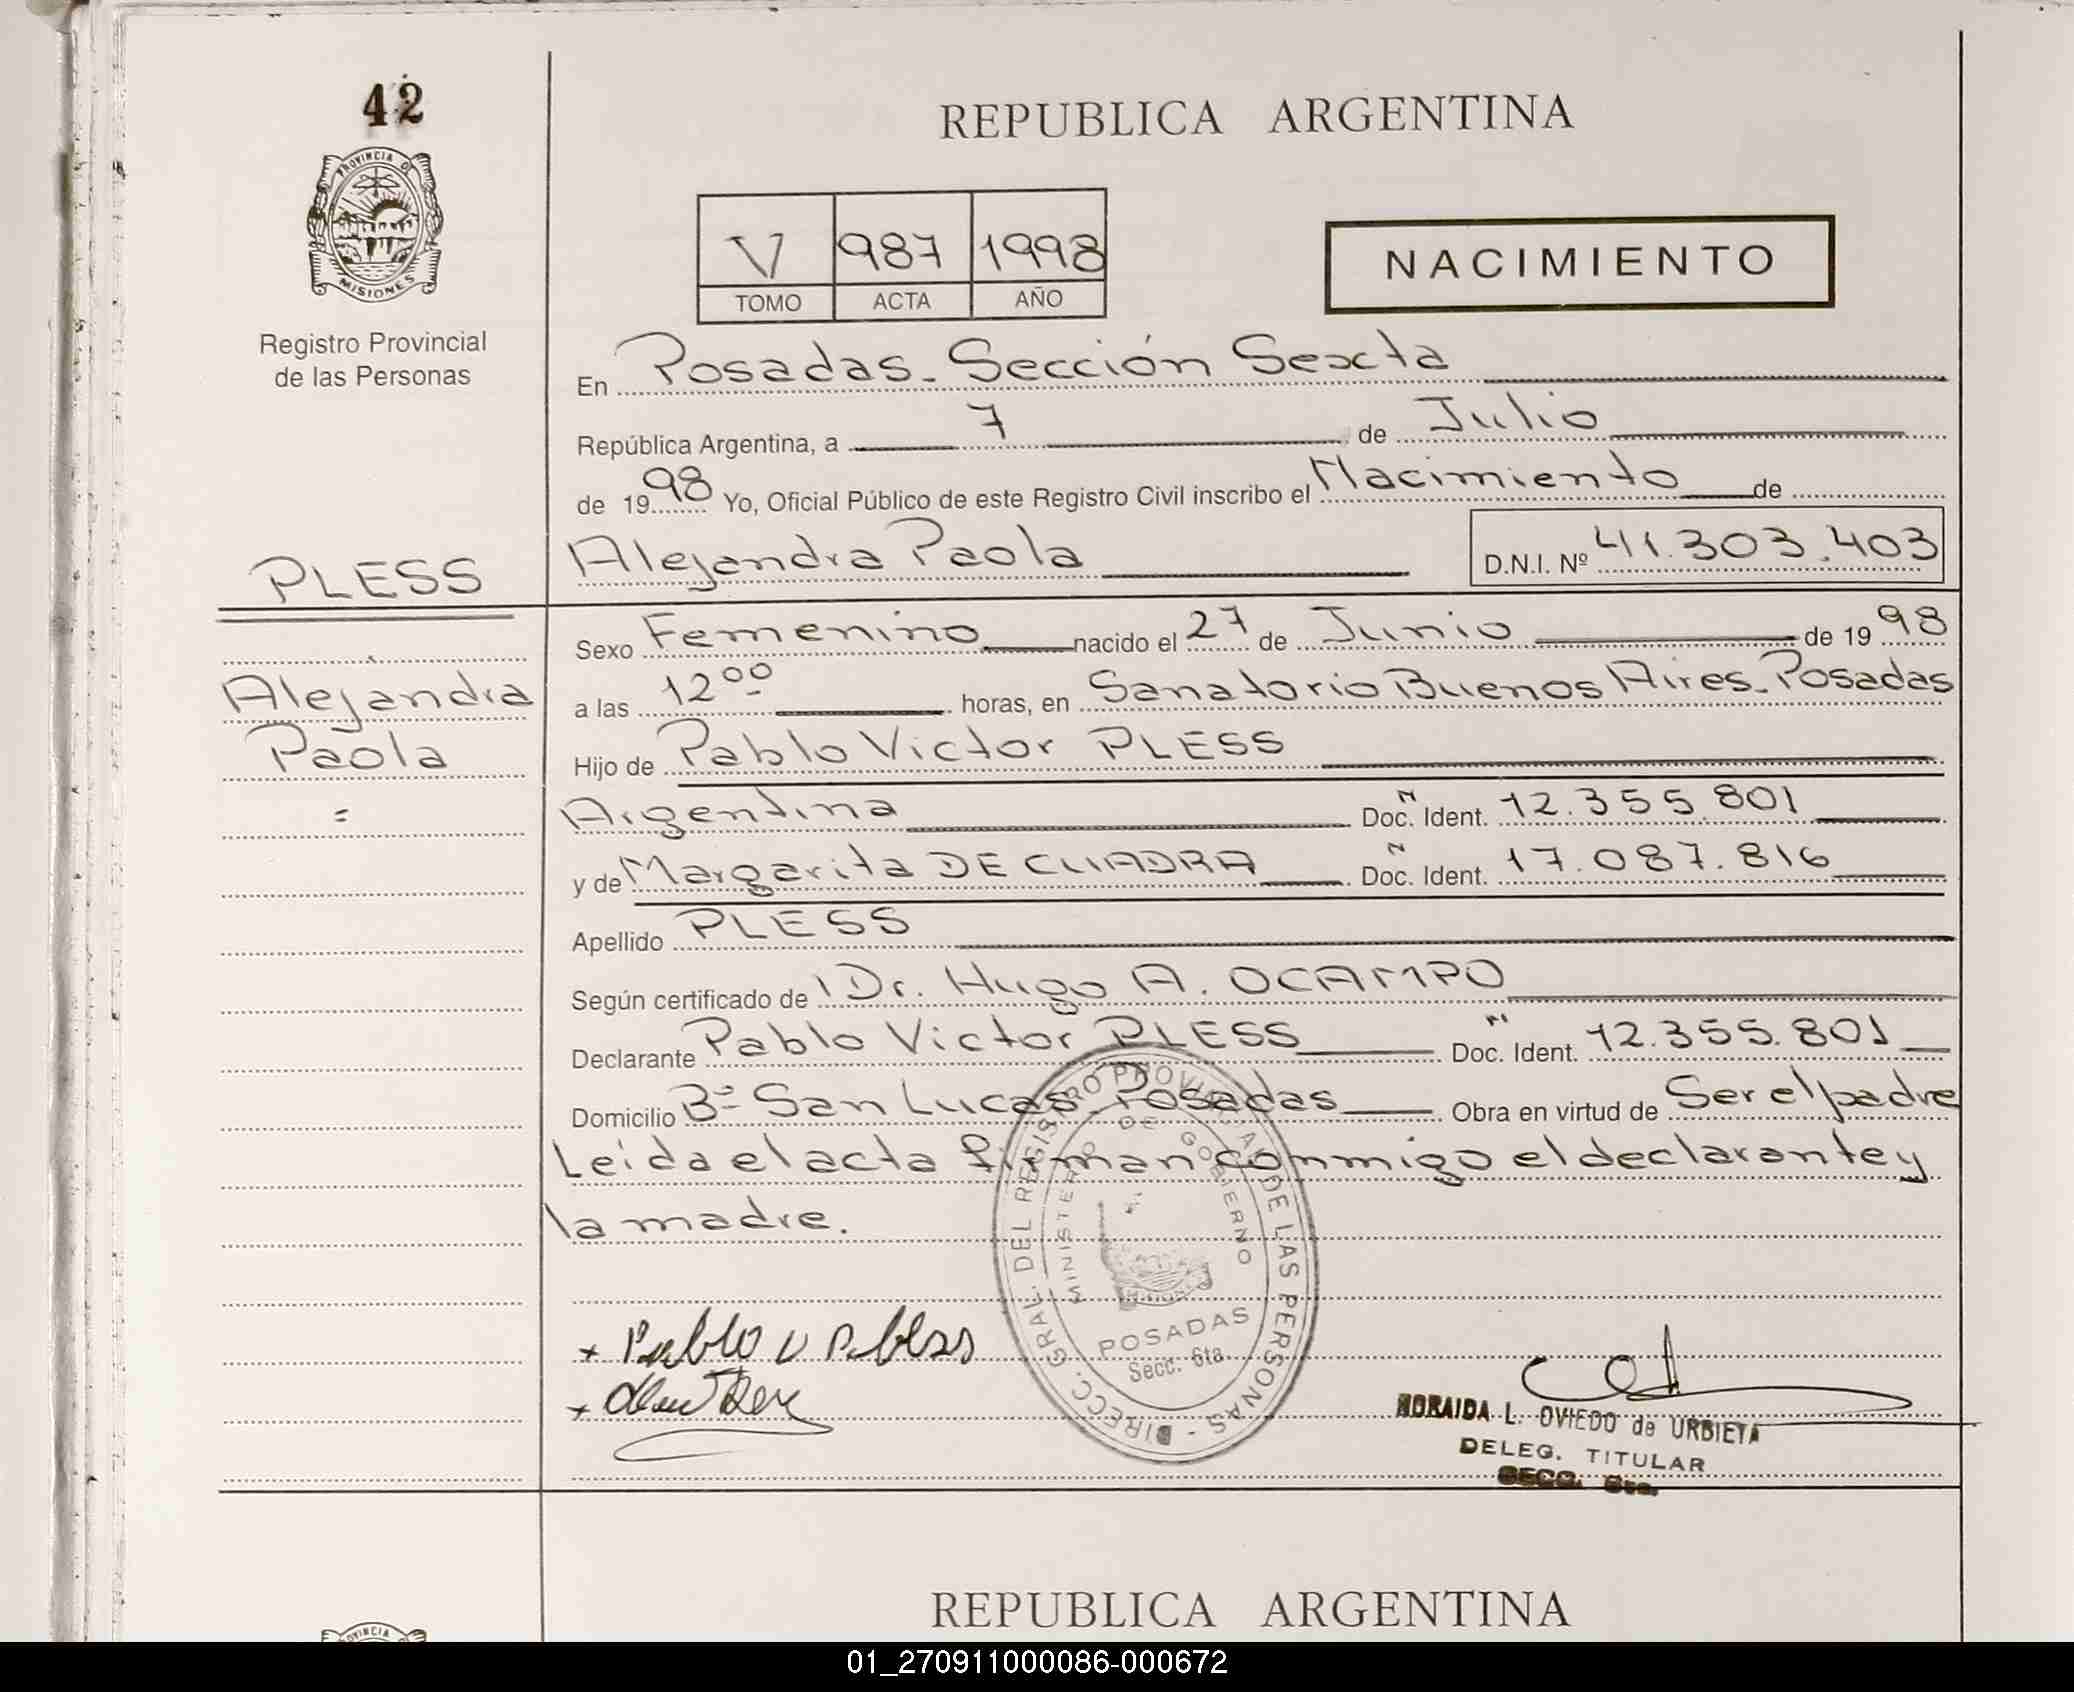 42
PROVINCIA DE
MISIONES
Registro Provincial
de las Personas
PLESS
Alejandra
Paola
=
REPUBLICA ARGENTINA
V 987 1998
TOMO ACTA AÑO
NACIMIENTO
En Posadas - Sección Sexta
República Argentina, a 7 de Julio
de 1998 Yo, Oficial Público de este Registro Civil inscribo el Nacimiento de
Alejandra Paola D.N.I. Nº 41.303.403
Sexo Femenino nacido el 27 de Junio de 1998
a las 12 00 horas, en Sanatorio Buenos Aires - Posadas
Hijo de Pablo Victor PLESS
Argentina Doc. N Ident. 12.355.801
y de Margarita DE CUADRA Doc. N Ident. 17.087.816
Apellido PLESS
Según certificado de Dr. Hugo A. OCAMPO
Declarante Pablo Victor PLESS Doc. N Ident. 12.355.801
Domicilio Bº San Lucas - Posadas Obra en virtud de Ser el padre
Leída el acta firman conmigo el declarante y
la madre.
DIRECC. GRAL. DEL REGISTRO PROVINCIAL DE LAS PERSONAS -
MINISTERIO DE GOBIERNO
POSADAS
Secc. 6ta
+ Pablo V
NORAIDA L. OVIEDO de URBIETA
DELEG. TITULAR
SECC. 6ta.
REPUBLICA ARGENTINA
PROVINCIA
01_270911000086-000672